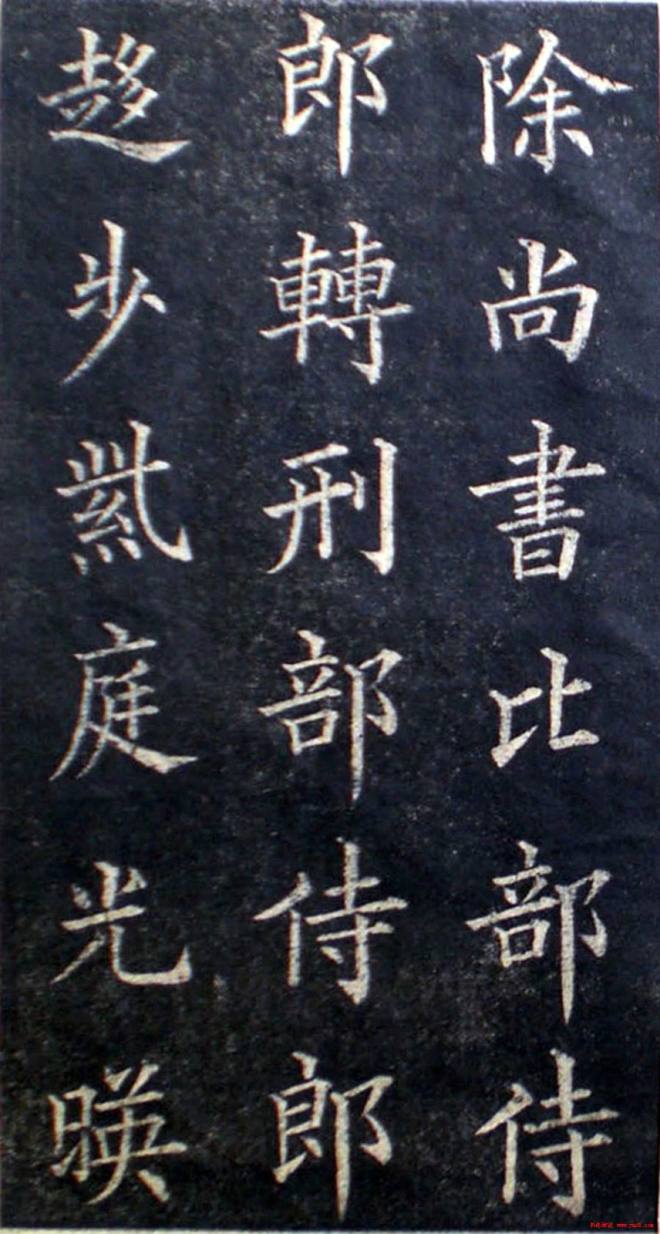 除尚書比部侍
郎轉刑部侍郎
趍步紫庭光暎